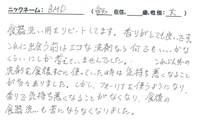 ニックネーム：BMD （ 在住、 歳、性別：女 ）
食器洗い用をリピートしてます。香りがとても良く、
これに出会う前はエコな洗剤なら何でもいい、かな
くらいにしか考えてませんでした。 これ以外の
洗剤を食後すぐに使っていた時は気持ち悪くなること
が多々ありました。しかし、フォーリアを使うようになり、
香りで気持ち悪くなることがなくなり、食後の
食器洗いも苦にならなくなりました。